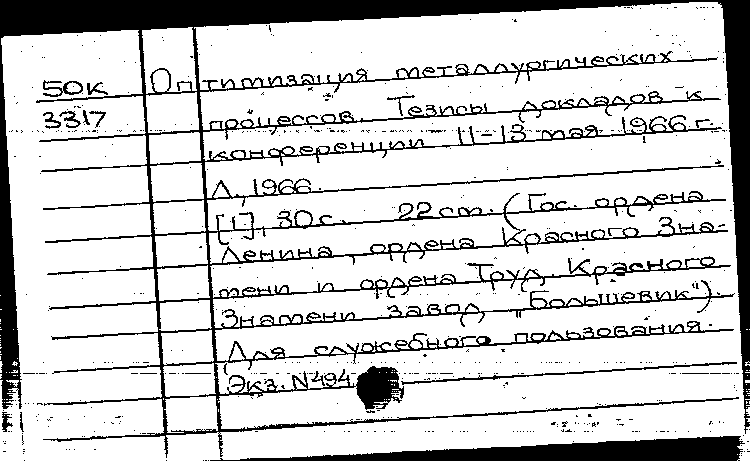 50К Оптимизация металлургических
3317 процессов. Тезисы докладов к
конференции 11-13 мая 1966 г.
Л., 1966.
[1], 30 с. 22 cm. (Гос. ордена
Ленина, ордена Красного Зна-
мени и ордена Труд. Красного
Знамени завод „Большевик").
Для служебного пользования.
Экз. N494